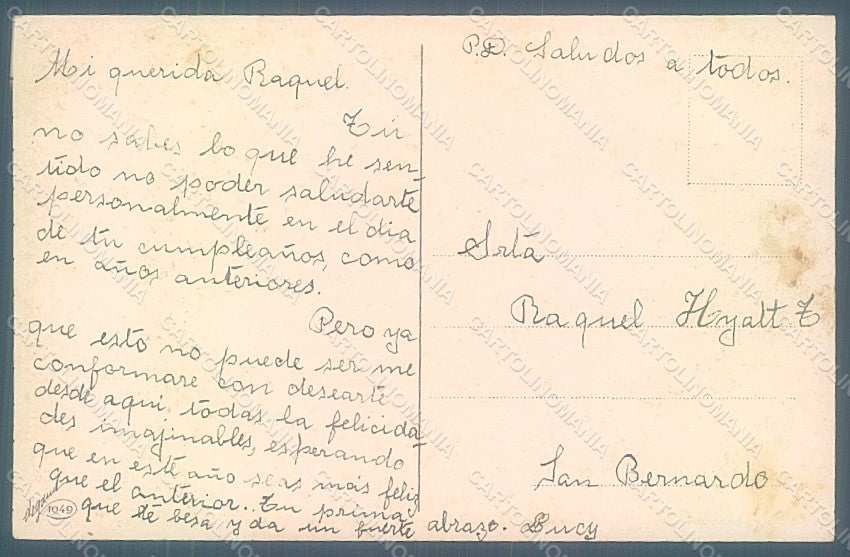 Mi querida Raquel.
Tú
no sabes lo que he sen-
tido no poder saludarte
personalmente en el dia
de tu cumpleaños, como
en años anteriores.
Pero ya
que esto no puede ser me
conformare con desearte
desde aquí, todas la felicida-
des imajinables, esperando
que en este año seas más feliz
que el anterior.. Tu prima
que te besa y da un fuerte abrazo. Lucy
1949
P.D. Saludos a todos.
Srtá
Raquel Hyatt T
San Bernardo
CARTOLINOMANIA